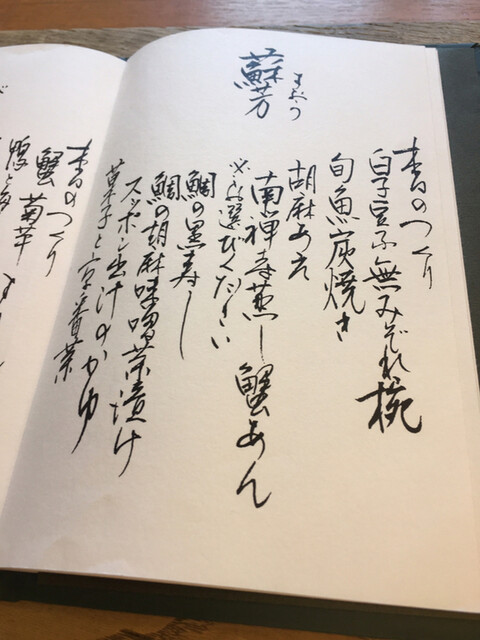 蘇芳
すおう
本日のつくり
白子豆ふ蕪みぞれ椀
旬魚炭焼き
胡麻あえ
南禅寺蒸し蟹あん
※お選びください
鯛の黒寿し
鯛の胡麻味噌茶漬け
スッポン出汁のかゆ
菓子と京番茶
本日のつくり
蟹 菊芋